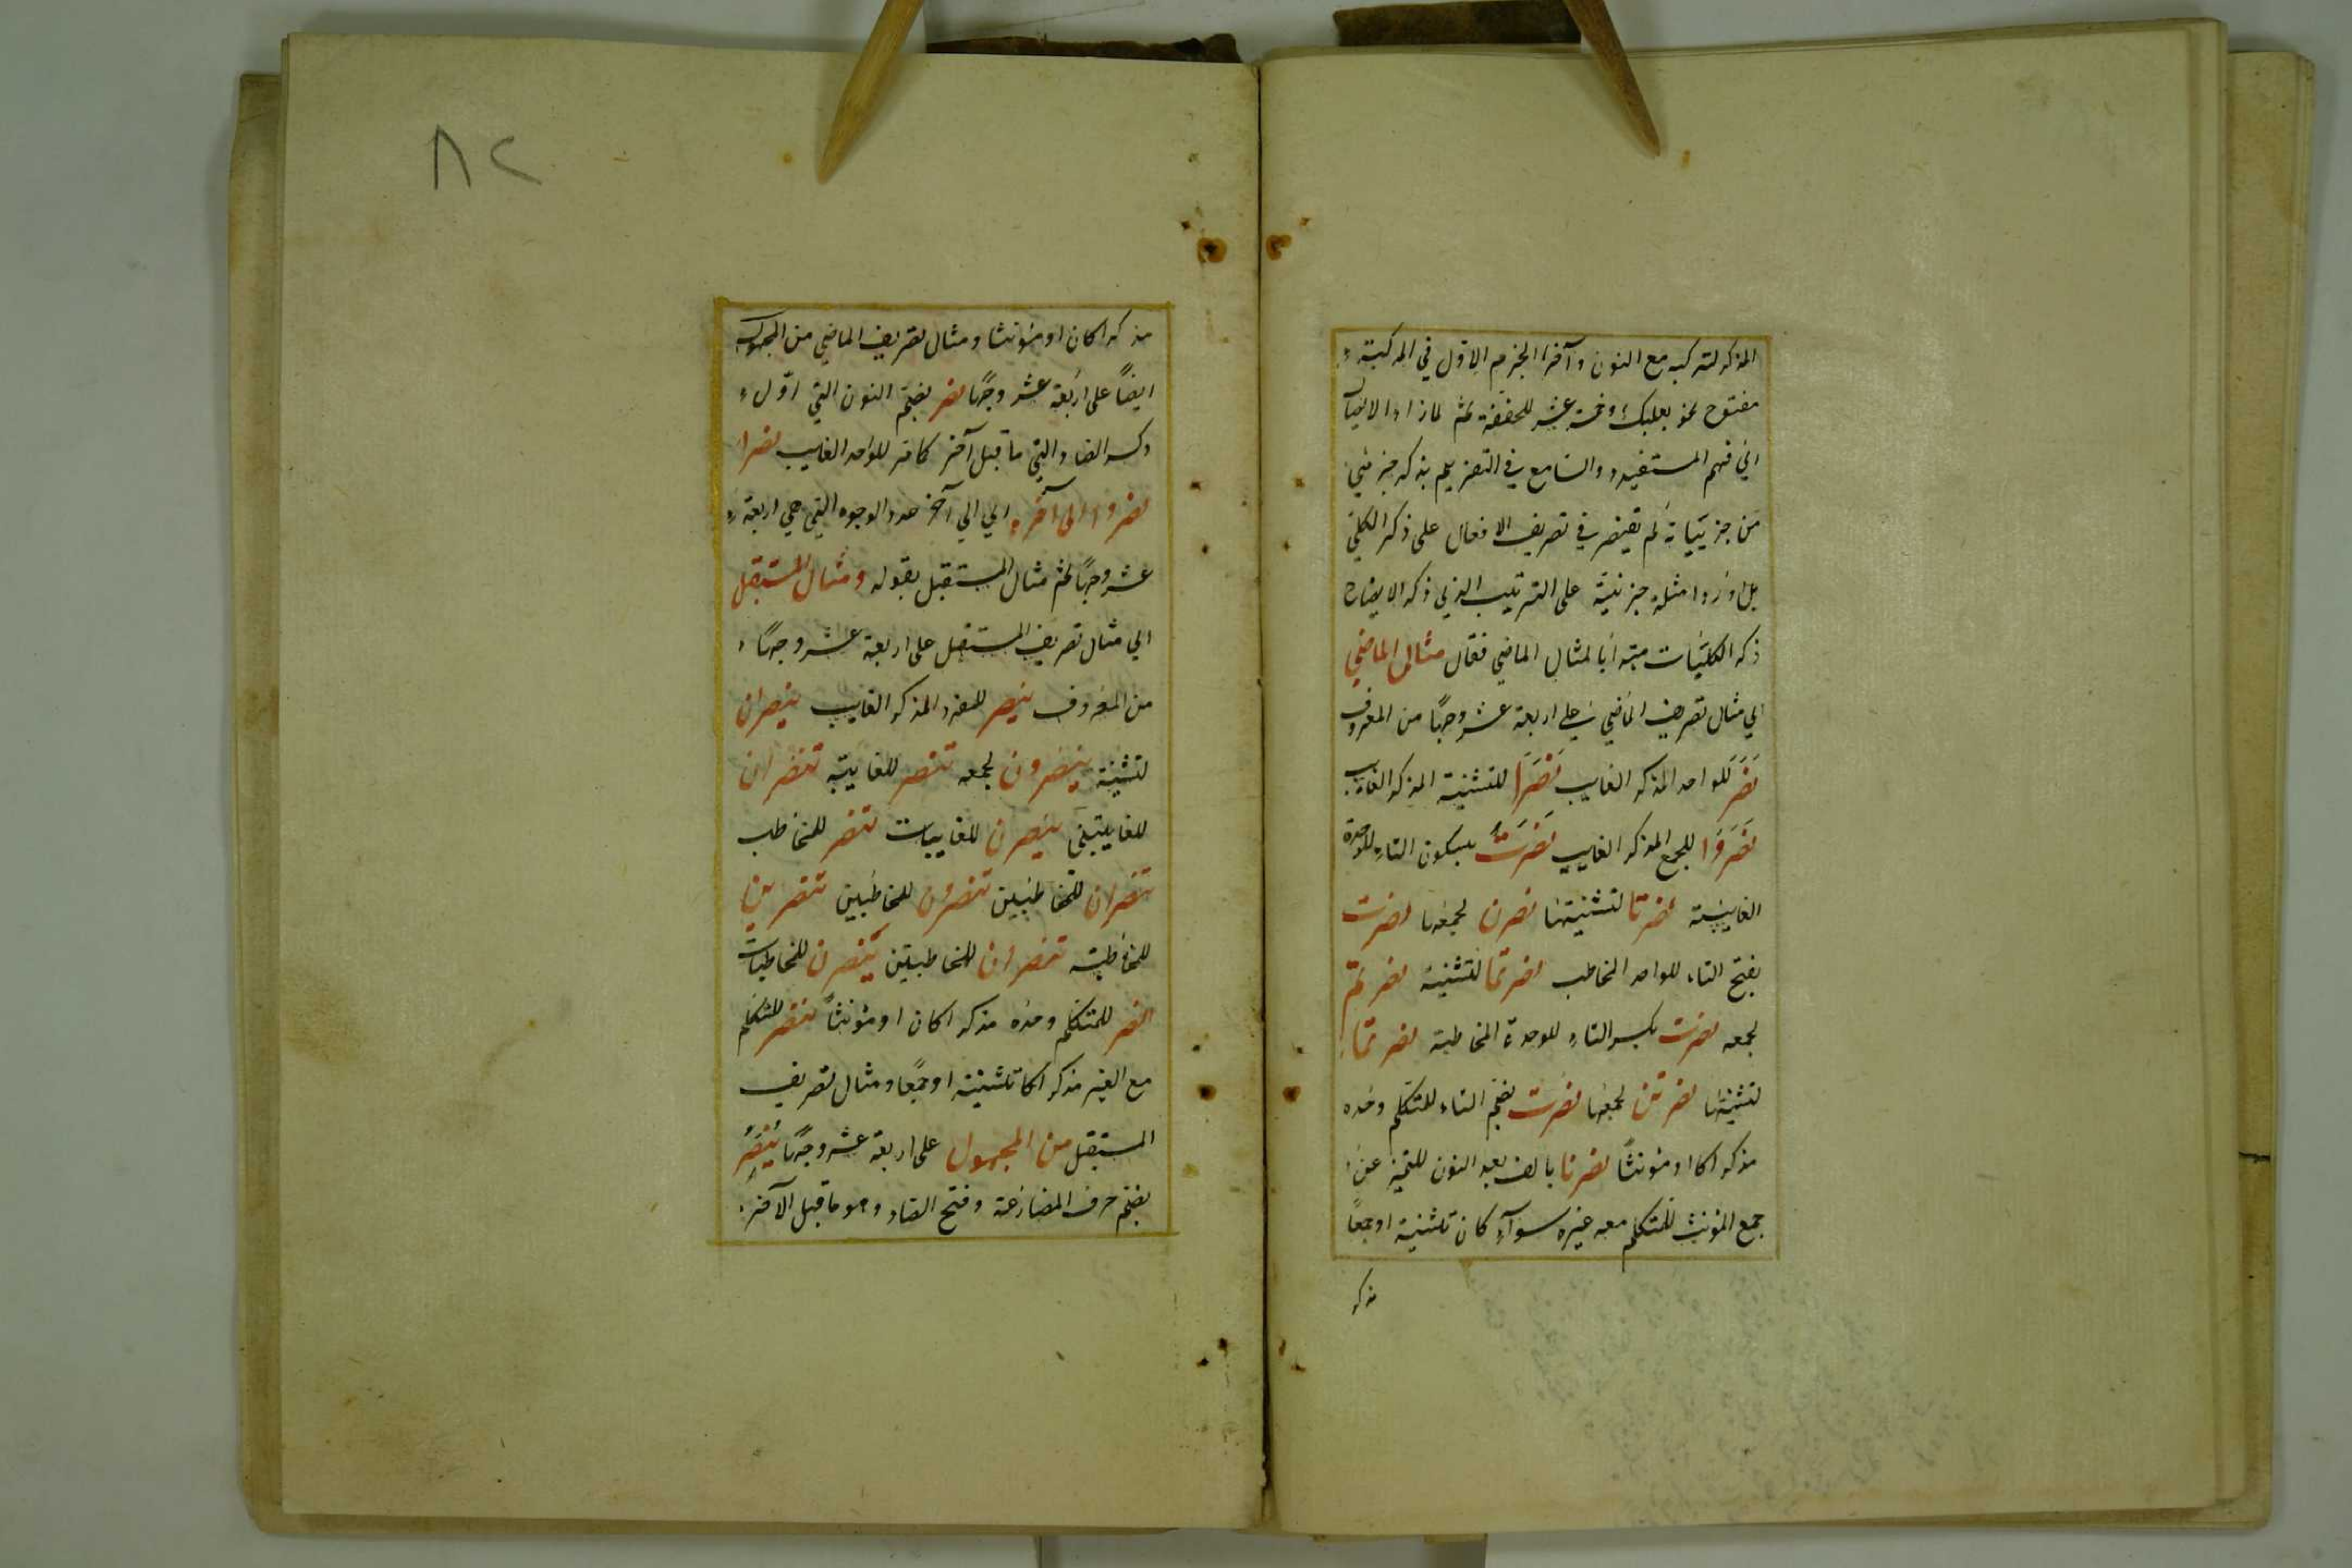 المذكر لتركبه مع النون وآخر الجزء الاول في المركبة
مفتوح نحو بعلبك وخمسة عشر للخفة ثم لما زاد الايصال
الي فهم المستفيد والسامع في التعريف بذكر جزئي
من جزئياته لم يقتصر في تصريف الافعال على ذكر الكلي
بل اورد امثلة جزئية على الترتيب الذي ذكر الايضاح
ذكر الكليات مبتدأ بالمثال الماضي فقال مثال الماضي
اي مثال تصريف الماضي على اربعة عشر وجها من المعروف
نَصَرَ للواحد المذكر الغايب نَصَرَا للتثنية المذكر الغايب
نَصَرُوا للجمع المذكر الغايب نَصَرَتْ بسكون التاء للواحدة
الغايبة نصرتا لتثنيتها نصرن لجمعها نصرت
بفتح التاء للواحد المخاطب نصرتما لتثنيته نصرتم
لجمعه نصرت بكسر التاء للوحدة المخاطبة نصرتما
لتثنيتها نصرتن لجمعها نصرت بضم التاء للمتكلم وحده
مذكرا كان او مؤنثاً نصرنا بالف بعد النون للتميز عن
جمع المؤنث للمتكلم معه غيره سوآء كان تثنية او جمعاً
مذكر
٨٢
مذكرا كان او مؤنثا ومثال تصريف الماضي من المجهول
ايضاً على اربعة عشر وجهًا نصر بضم النون التي اول
وكسر الصاد التي ما قبل آخر كامر للواحد الغايب نصرا
نصروا الى آخره اي الي آخر عدد الوجوه التي هي اربعة
عشر وجهًا ثم مثال المستقبل بقوله ومثال المستقبل
اي مثال تصريف المستقبل على اربعة عشر وجهًا
من المعروف ينصر للمفرد المذكر الغايب ينصران
لتثنية ينصرون لجمعه تنصر للغايبة تنصران
للغايبتين ينصرن للغايبات تنصر للمخاطب
تنصران للمخاطبين تنصرون للمخاطبين تنصرين
للمخاطبة تنصران للمخاطبتين تنصرن للمخاطبات
انصر للمتكلم وحده مذكرا كان او مؤنثاً ننصر للمتكلم
مع الغير مذكرا كان تثنية او جمعًا ومثال تصريف
المستقبل من المجهول على اربعة عشر وجهًا يُنْصَرُ
بضم حرف المضارعة وفتح الصاد وهو ما قبل الآخر